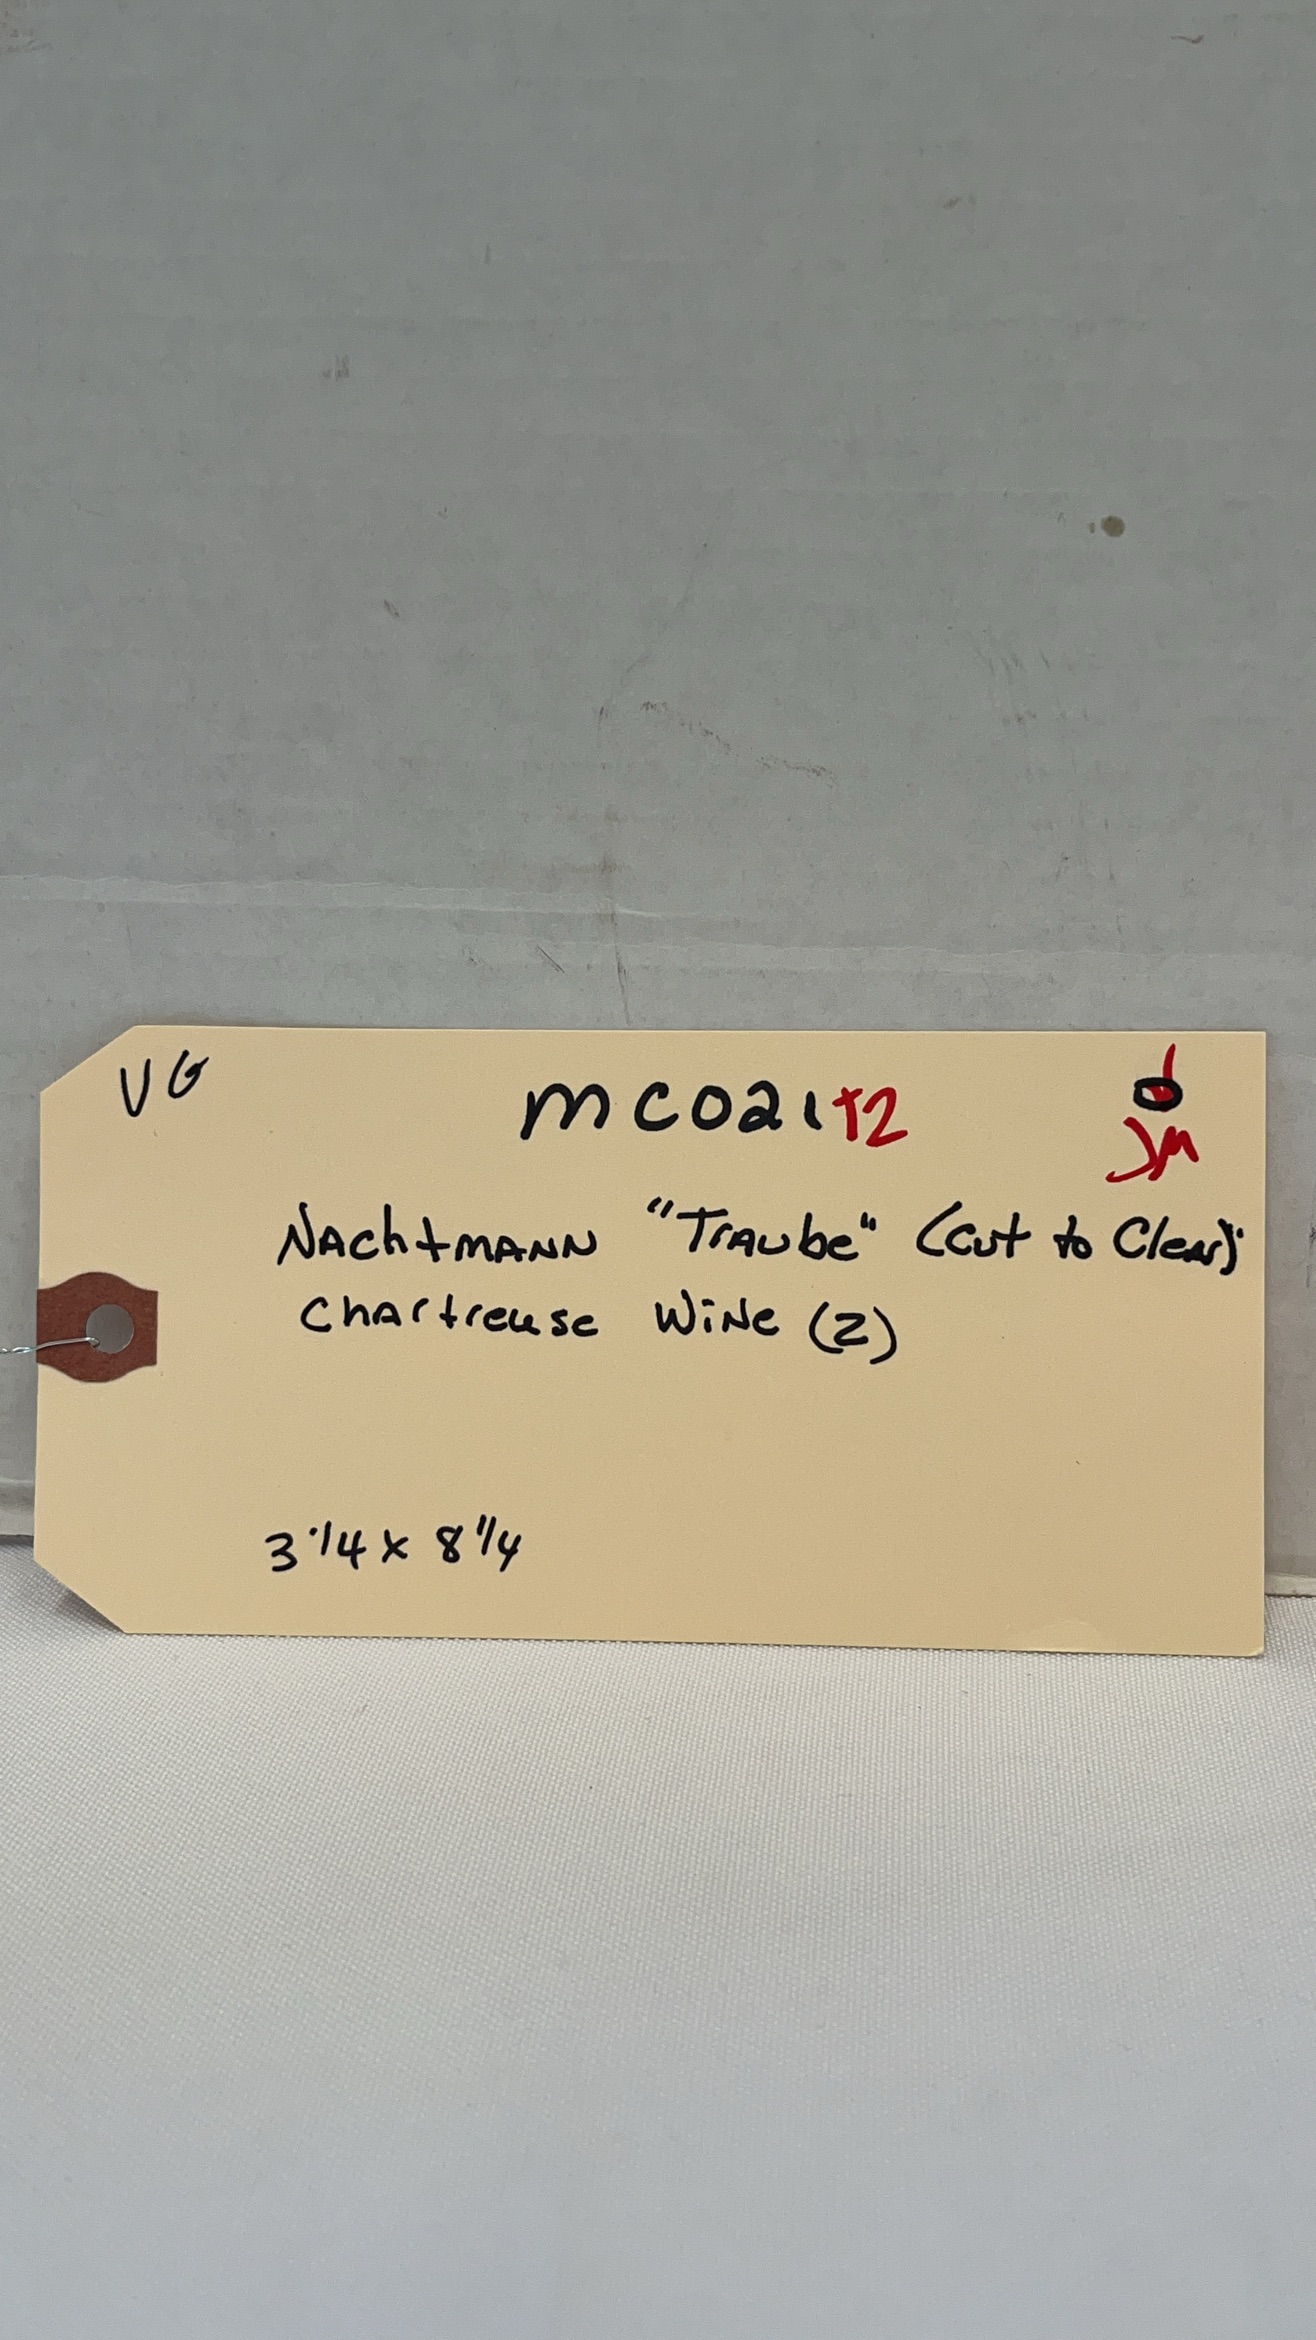 VG
MC021+2
JM
Nachtmann "Traube" (Cut to Clear)
Chartreuse Wine (2)
3 1/4 x 8 1/4